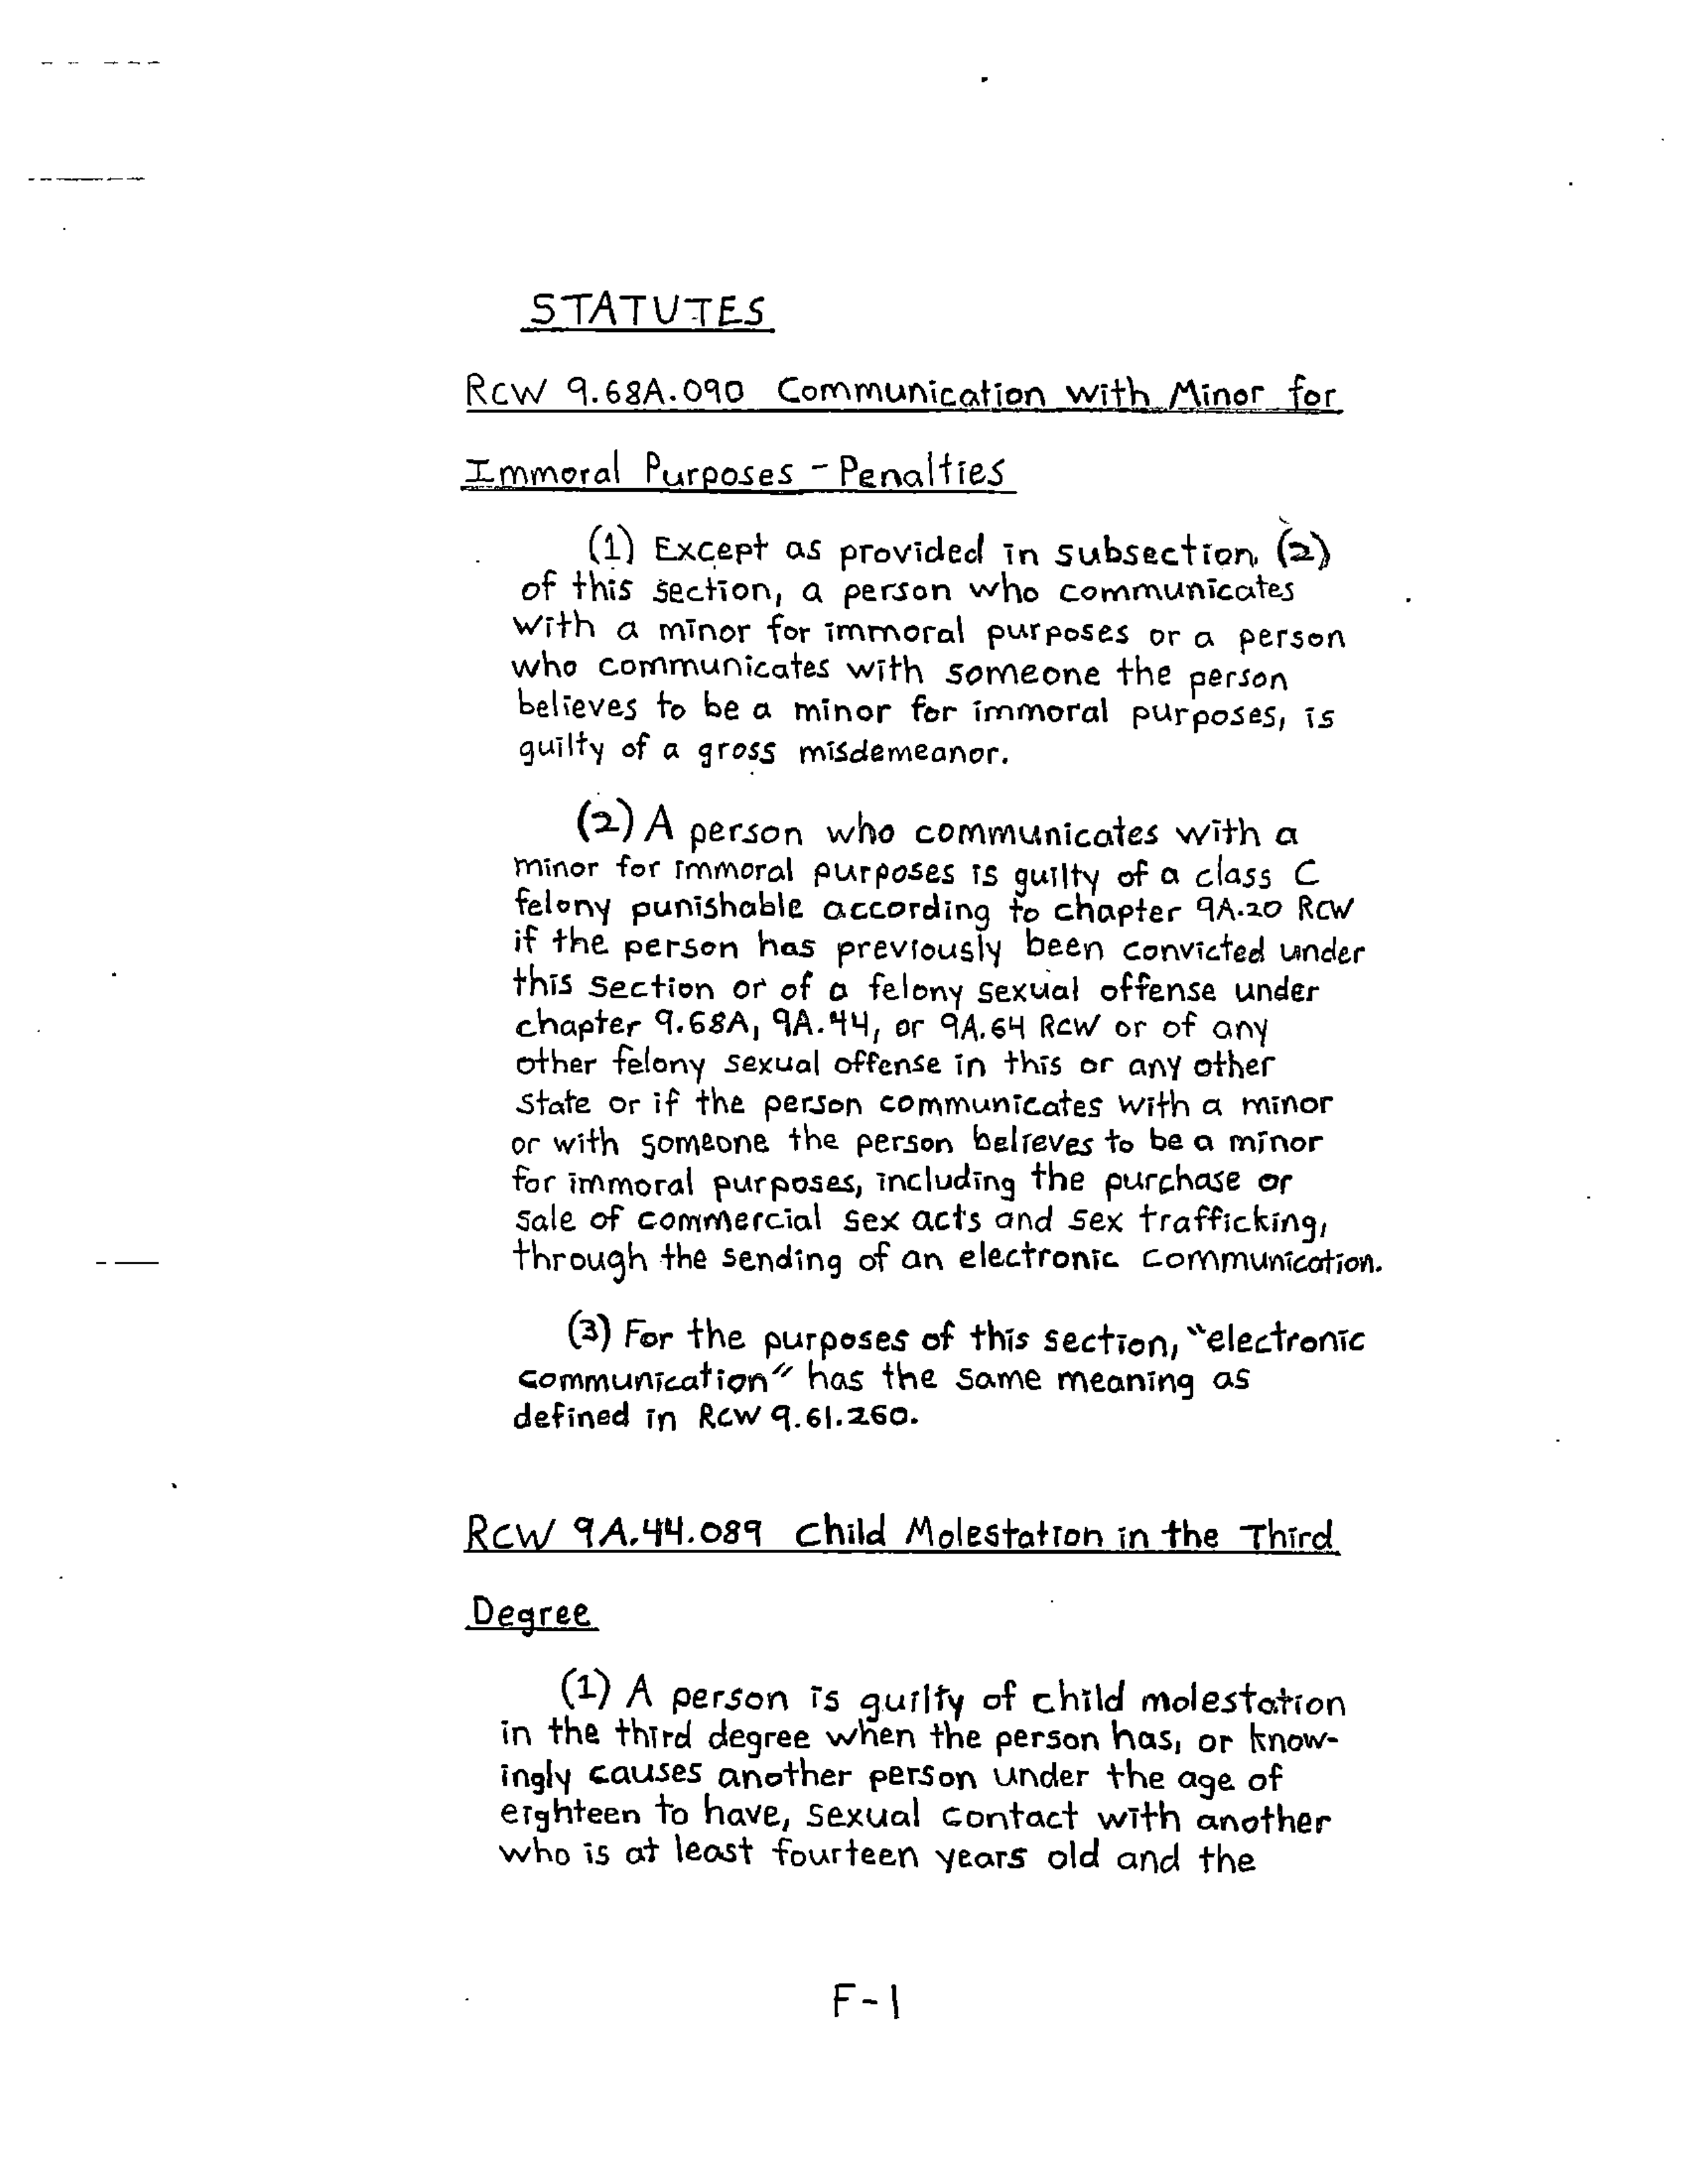 STATUTES
RCW 9.68A.090 Communication with Minor for
Immoral Purposes - Penalties
(1) Except as provided in subsection (2)
of this section, a person who communicates
with a minor for immoral purposes or a person
who communicates with someone the person
believes to be a minor for immoral purposes, is
guilty of a gross misdemeanor.
(2) A person who communicates with a
minor for immoral purposes is guilty of a class C
felony punishable according to chapter 9A.20 RCW
if the person has previously been convicted under
this section or of a felony sexual offense under
chapter 9.68A, 9A.44, or 9A.64 RCW or of any
other felony sexual offense in this or any other
state or if the person communicates with a minor
or with someone the person believes to be a minor
for immoral purposes, including the purchase or
sale of commercial sex acts and sex trafficking,
through the sending of an electronic communication.
(3) For the purposes of this section, "electronic
communication" has the same meaning as
defined in RCW 9.61.260.
RCW 9A.44.089 Child Molestation in the Third
Degree
(1) A person is guilty of child molestation
in the third degree when the person has, or know-
ingly causes another person under the age of
eighteen to have, sexual contact with another
who is at least fourteen years old and the
F-1